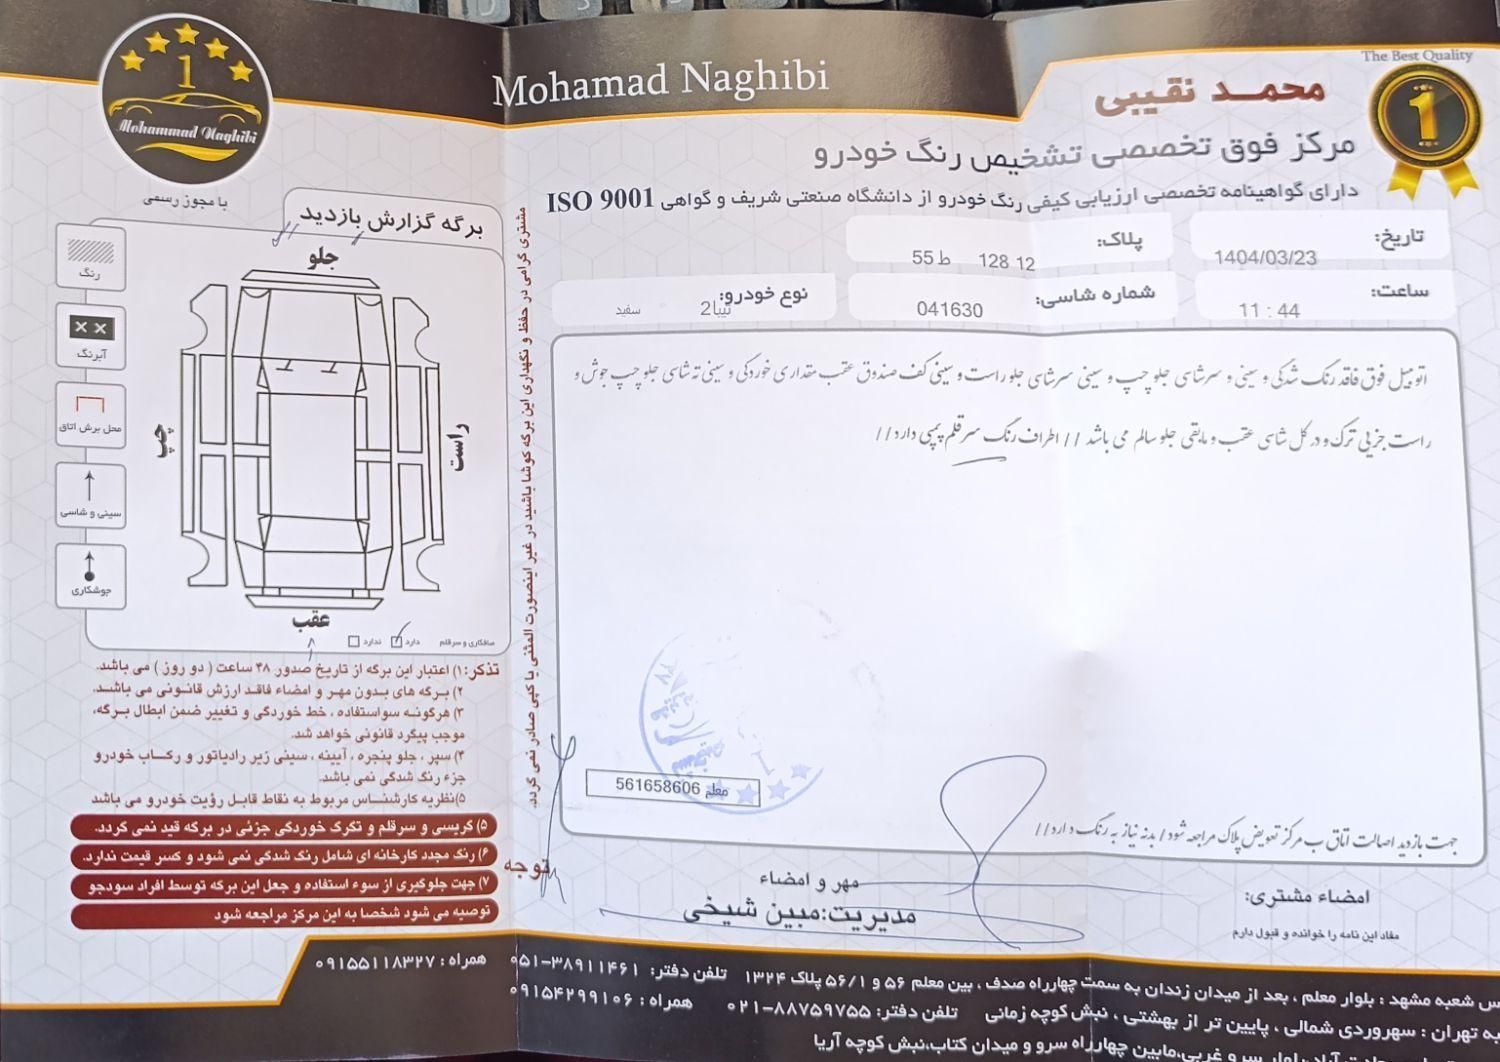 The Best Quality
1
Mohamad Naghibi
محمد نقیبی
مرکز فوق تخصصی تشخیص رنگ خودرو
دارای گواهینامه تخصصی ارزیابی کیفی رنگ خودرو از دانشگاه صنعتی شریف و گواهی ISO 9001
تاریخ: 1404/03/23
پلاک: 12 128 ط 55
ساعت: 11 : 44
شماره شاسی: 041630
نوع خودرو: تیبا2 سفید
اتومبیل فوق فاقد رنگ شدگی و سینی و سرشاسی جلو چپ و سینی سرشاسی جلو راست و سینی کف صندوق عقب مقداری خوردگی و سینی ته شاسی جلو چپ جوش و
راست جزیی ترک و در کل شاسی عقب و مابقی جلو سالم می باشد // اطراف رنگ سرقلم پمپی دارد//
معلم 561658606
جهت بازدید اصالت اتاق ب مرکز تعویض پلاک مراجعه شود/ بدنه نیاز به رنگ دارد//
مهر و امضاء
مدیریت:مبین شیخی
امضاء مشتری:
مفاد این نامه را خوانده و قبول دارم
مشتری گرامی در حفظ و نگهداری این برگه کوشا باشید در غیر اینصورت المثنی یا کپی صادر نمی گردد.
1
Mohammad Naghibi
با مجوز رسمی
برگه گزارش بازدید
رنگ
آبرنگ
محل برش اتاق
سینی و شاسی
جوشکاری
جلو
چپ
راست
عقب
صافکاری و سرقلم دارد ندارد
تذکر: ۱) اعتبار این برگه از تاریخ صدور ۴۸ ساعت ( دو روز ) می باشد.
۲) برگه های بدون مهر و امضاء فاقد ارزش قانونی می باشد.
۳) هرگونه سواستفاده ، خط خوردگی و تغییر ضمن ابطال برگه،
موجب پیگرد قانونی خواهد شد.
۴) سپر ، جلو پنجره ، آیینه ، سینی زیر رادیاتور و رکاب خودرو
جزء رنگ شدگی نمی باشد.
۵)نظریه کارشناس مربوط به نقاط قابل رؤیت خودرو می باشد
۵) کریسی و سرقلم و تگرگ خوردگی جزئی در برگه قید نمی گردد.
۶) رنگ مجدد کارخانه ای شامل رنگ شدگی نمی شود و کسر قیمت ندارد.
توجه
۷) جهت جلوگیری از سوء استفاده و جعل این برگه توسط افراد سودجو
توصیه می شود شخصا به این مرکز مراجعه شود
س شعبه مشهد : بلوار معلم ، بعد از میدان زندان به سمت چهارراه صدف ، بین معلم ۵۶ و ۵۶/۱ پلاک ۱۳۲۴ تلفن دفتر: ۳۸۹۱۱۴۶۱-۰۵۱ همراه : ۰۹۱۵۵۱۱۸۳۲۷
به تهران : سهروردی شمالی ، پایین تر از بهشتی ، نبش کوچه زمانی تلفن دفتر: ۸۸۷۵۹۷۵۵-۰۲۱ همراه : ۰۹۱۵۴۲۹۹۱۰۶
بلوار سرو غربی،مابین چهارراه سرو و میدان کتاب،نبش کوچه آریا